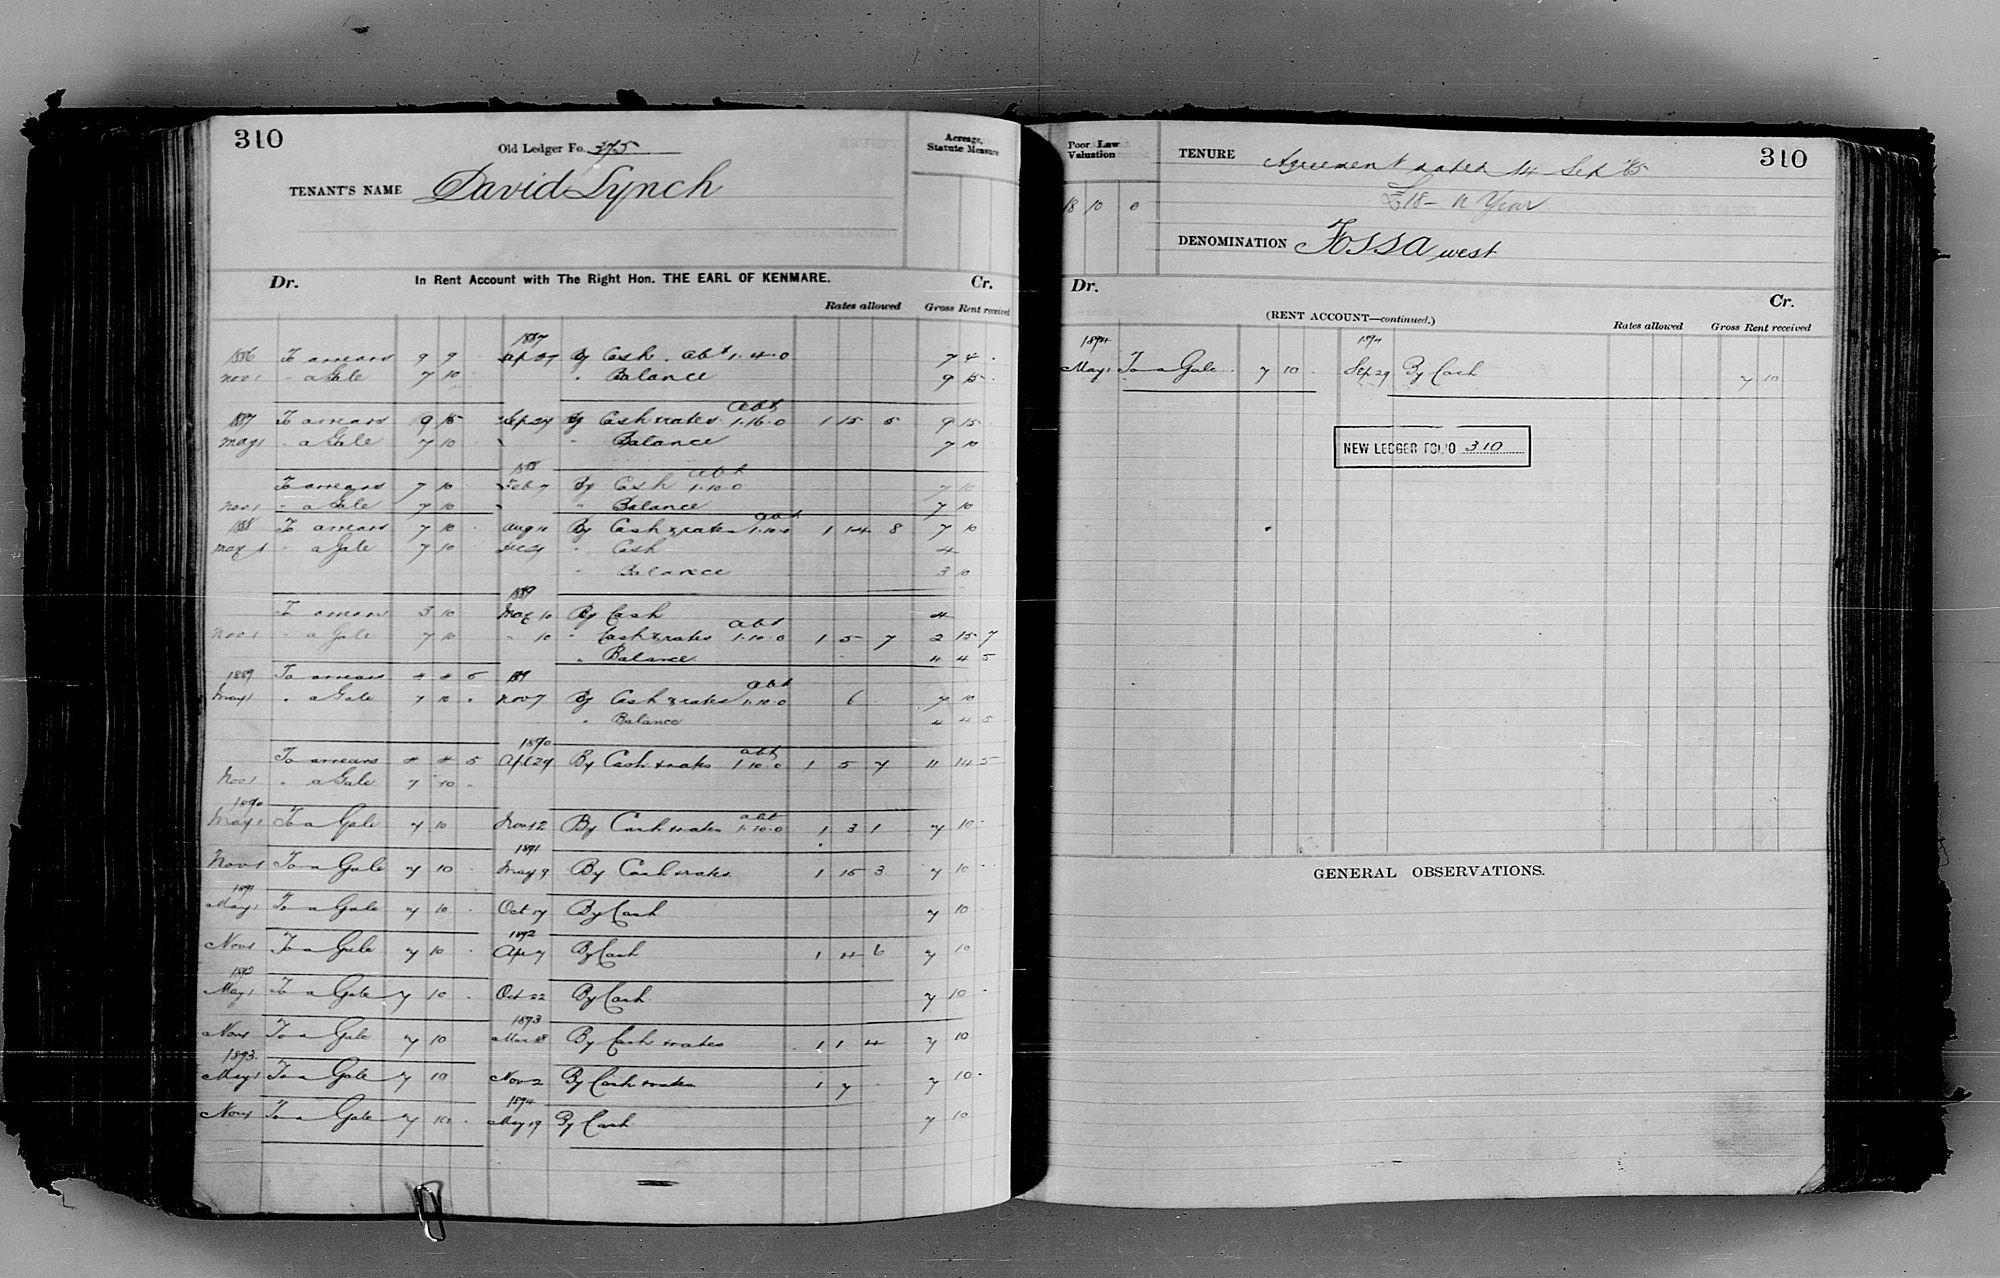 310
Old Ledger Fo. 275
Acreage,
Statute Measure
TENANT'S NAME David Lynch
Dr. In Rent Account with The Right Hon. THE EARL OF KENMARE. Cr.
Rates allowed Gross Rent received
1887
1886 To arrears 9 9 Sep 27 By Cash . abt 1.4.0 7 4 .
Nov 1 " a Gale 7 10 " Balance 9 15 .
abt
1887 To arrears 9 15 Sep 24 By Cash & rates 1.16.0 1 15 5 9 15
May 1 " a Gale 7 10 " Balance 7 10
1888 abt
To arrears 7 10 Feb 7 By Cash 1.10.0 7 10
Nov 1 " a Gale 7 10 " Balance 7 10
abt
1888 To arrears 7 10 Aug 11 By Cash & rates 1.10.0 1 14 8 7 10
May 1 " a Gale 7 10 Dec 21 " Cash 4
" Balance 3 10
1889
To arrears 3 10 May 10 By Cash 4
abt
Nov 1 " a Gale 7 10 " 10 " Cash & rates 1.10.0 1 5 7 2 15 7
" Balance 4 4 5
1889 To arrears 4 4 5 1889
abt
May 1 " a Gale 7 10 . Nov 7 By Cash & rates 1.10.0 6 . 7 10
" Balance 4 4 5
1890 abt
To arrears 4 4 5 Apl 29 By Cash & rates 1.10.0 1 5 7 11 14 5
Nov 1 " a Gale 7 10 .
1890 abt
May 1 To a Gale 7 10 Nov 12 By Cash & rates 1.10.0 1 3 1 7 10 .
1891
Nov 1 To a Gale 7 10 . May 9 By Cash & rates 1 15 3 7 10 .
1891
May 1 To a Gale 7 10 . Oct 17 By Cash 7 10 .
1892
Nov 1 To a Gale 7 10 . Apl 7 By Cash 1 4 6 7 10
1892
May 1 To a Gale 7 10 . Oct 22 By Cash 7 10 .
1893
Nov 1 To a Gale 7 10 Mar 18 By Cash & rates 1 1 4 7 10
1893
May 1 To a Gale 7 10 Nov 2 By Cash & rates 1 7 . 7 10 .
1894
Nov 1 To a Gale 7 10 . May 19 By Cash 7 10
Poor Law
Valuation
18 10 0
TENURE Agreement dated 14 Sep '65
310
£18 - a Year
DENOMINATION Fossa west
Dr. Cr.
(RENT ACCOUNT—continued.)
Rates allowed Gross Rent received
1894 1894
May 1 To a Gale 7 10 . Sep 29 By Cash 7 10
NEW LEDGER FOLIO 310
GENERAL OBSERVATIONS.